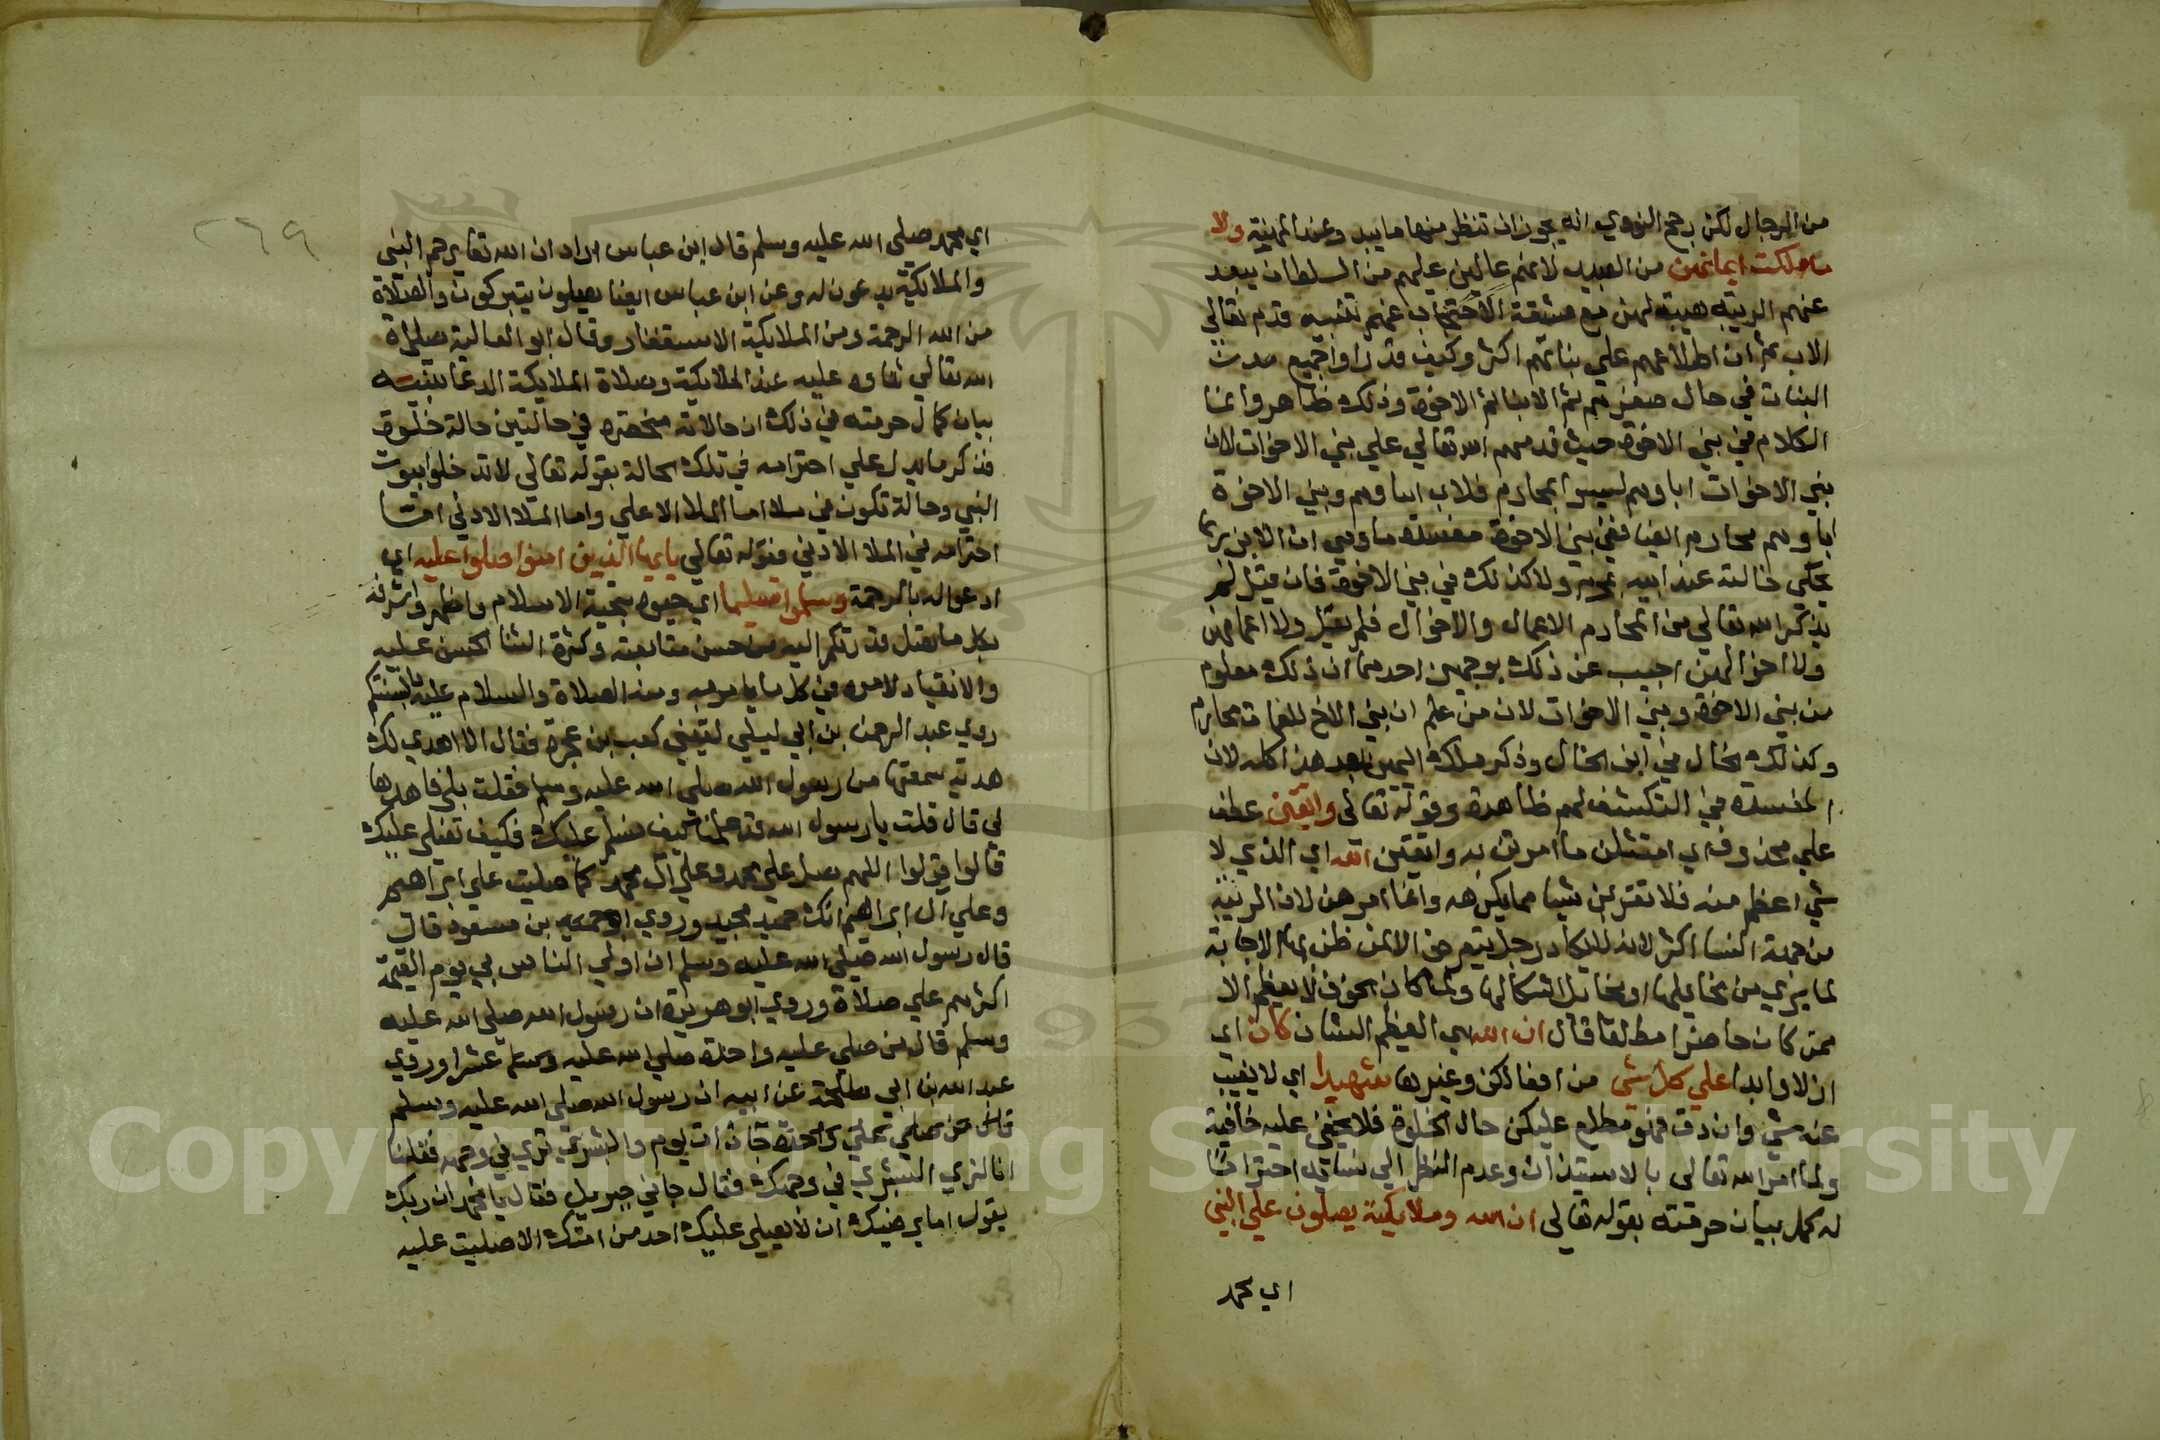 من الرجال لكن رجح النووي انه يجوز ان تنظر منها ما يبدو عند المهنة ولا
ما ملكت ايمانهن من العبيد لانهم عالين عليهم من السلطان يبعد
عنهم الريبة هيبة لهن مع مشقة الاحتجاب عنهم تنبيه قدم تعالى
الاب ثم ان اطلاعهم علي بناتهم اكثر وكيف قد راوا جميع بدن
البنات في حال صغرهم ثم الابنا ثم الاخوة وذلك ظاهر وانما
الكلام في بني الاخوة حيث قدمهم الله تعالي علي بني الاخوات لان
بني الاخوات اباوهم ليسوا بمحارم خلاات ابناوهم وبني الاخوة
اباوهم محارم ايضا ففي بني الاخوة مفسدة ما وهي ان الابن ربما
يحكي خالته عند ابيه ولا كذلك في بني الاخوة فان قيل لم
يذكر الله تعالي من المحارم الاعمام والاخوال فلم يقل ولا اعمامهن
ولا اخوالهن اجيب عن ذلك بوجهين احدهما ان ذلك معلوم
من بني الاخوة وبني الاخوات لان من علم ان بني الاخ للعمات محارم
وكذلك الحال في ابن الخال وذكر ملك اليمين بعد هذا كله لان
المفسدة في التكشف لهم ظاهرة وقوله تعالى واتقين عطف
علي محذوف اي امتثلن ما امرتن به واتقين الله اي الذي لا
شي اعظم منه فلا تقربن شيا مما يكرهه وانما امرهن لان الريبة
من جهة النسا اكثر لانه لا يكاد رجل يتعرض الا لمن ظن بها الاجابة
لما يري من مخايلها ومخايل اشكالها ولما كان الخوف لا يعظم الا
ممن كان حاضرا مطلقا قال ان الله اي العظيم الشان كان اي
ازلا وابدا علي كل شي من افعالكن وغيرها شهيدا اي لا يغيب
عنه شي وان دق فهو مطلع عليكن حال الخلوة فلا يخفي عليه خافية
ولما امر الله تعالى بالاستيذان وعدم النظر الي نسايه احتراما
له كمل بيان حرمته بقوله تعالى ان الله وملايكته يصلون علي النبي
اي محمد
٢٦٩
اي محمد صلى الله عليه وسلم قال ابن عباس اراد ان الله تعالى يرحم النبي
والملايكة يدعون له وعن ابن عباس ايضا يصلون يتبركون والصلاة
من الله الرحمة ومن الملايكة الاستغفار وقال ابو العالية صلاة
الله تعالي ثناوه عليه عند الملايكة وصلاة الملايكة الدعا تنبيه
بيان كمال حرمته في ذلك ان حالاته منحصره في حالتين حالة خلوة
فذكر ما يدل علي احترامه في تلك الحالة بقوله تعالى لا تدخلوا بيوت
النبي وحالة تكون في ملا اما الملا الاعلي واما الملا الادني اما
احترامه في الملا الادني فقوله تعالي يايها الذين امنوا صلوا عليه اي
ادعوا له بالرحمة وسلموا تسليما اي حيوه بتحية الاسلام واظهروا شرفه
بكل ما تصل قدرتكم اليه من حسن متابعته وكثرة الثنا الحسن عليه
والانقياد لامره في كل ما يامر به ومنه الصلاة والسلام عليه بالسنتكم
روي عبد الرحمن بن ابي ليلي لقيني كعب بن عجرة فقال الا اهدي لك
هدية سمعتها من رسول الله صلى الله عليه وسلم فقلت بلى فاهدها
لي قال قلت يا رسول الله قد علمنا كيف نسلم عليك فكيف نصلي عليك
قالوا قولوا اللهم صل علي محمد وعلي ال محمد كما صليت علي ابراهيم
وعلي ال ابراهيم انك حميد مجيد وروي بن مسعود قال
قال رسول الله صلي الله عليه وسلم ان اولي الناس بي يوم القيمة
اكثرهم علي صلاة وروي ابو هريرة ان رسول الله صلى الله عليه
وسلم قال من صلي عليه واحدة صلي الله عليه وسلم عشرا وروي
عبد الله بن ابي طلحة عن ابيه ان رسول الله صلى الله عليه وسلم
ذات يوم والبشري تري في وجهه فقلنا
انا لنري البشري في وجهك فقال جاني جبريل فقال يا محمد ان ربك
يقول اما يرضيك ان لا يصلي عليك احد من امتك الا صليت عليه
Copyright © King Saud University
1957